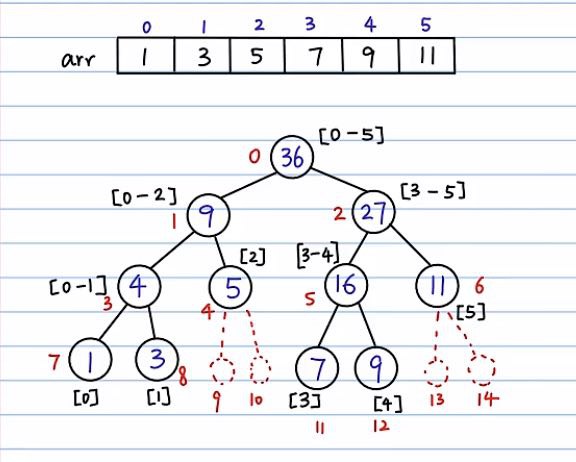 0 1 2 3 4 5
arr 1 3 5 7 9 11
0 36 [0-5]
[0-2] 1 9 2 27 [3-5]
[0-1] 3 4 [2] 4 5 [3-4] 5 16 11 6 [5]
7 1 3 8 7 9
[0] [1] 9 10 [3] [4] 13 14
11 12